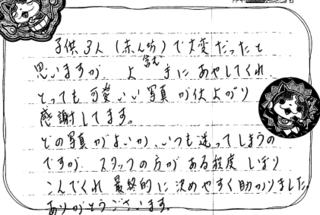 子供3人（赤ん坊）で大変だったと
思いますが、上手にあやしてくれ
とっても可愛いい写真が仕上がり
感謝してます。
どの写真がよいか、いつも迷ってしまうの
ですが、スタッフの方がある程度しぼり
こんでくれ最終的に決めやすく助かりました。
ありがとうございます。